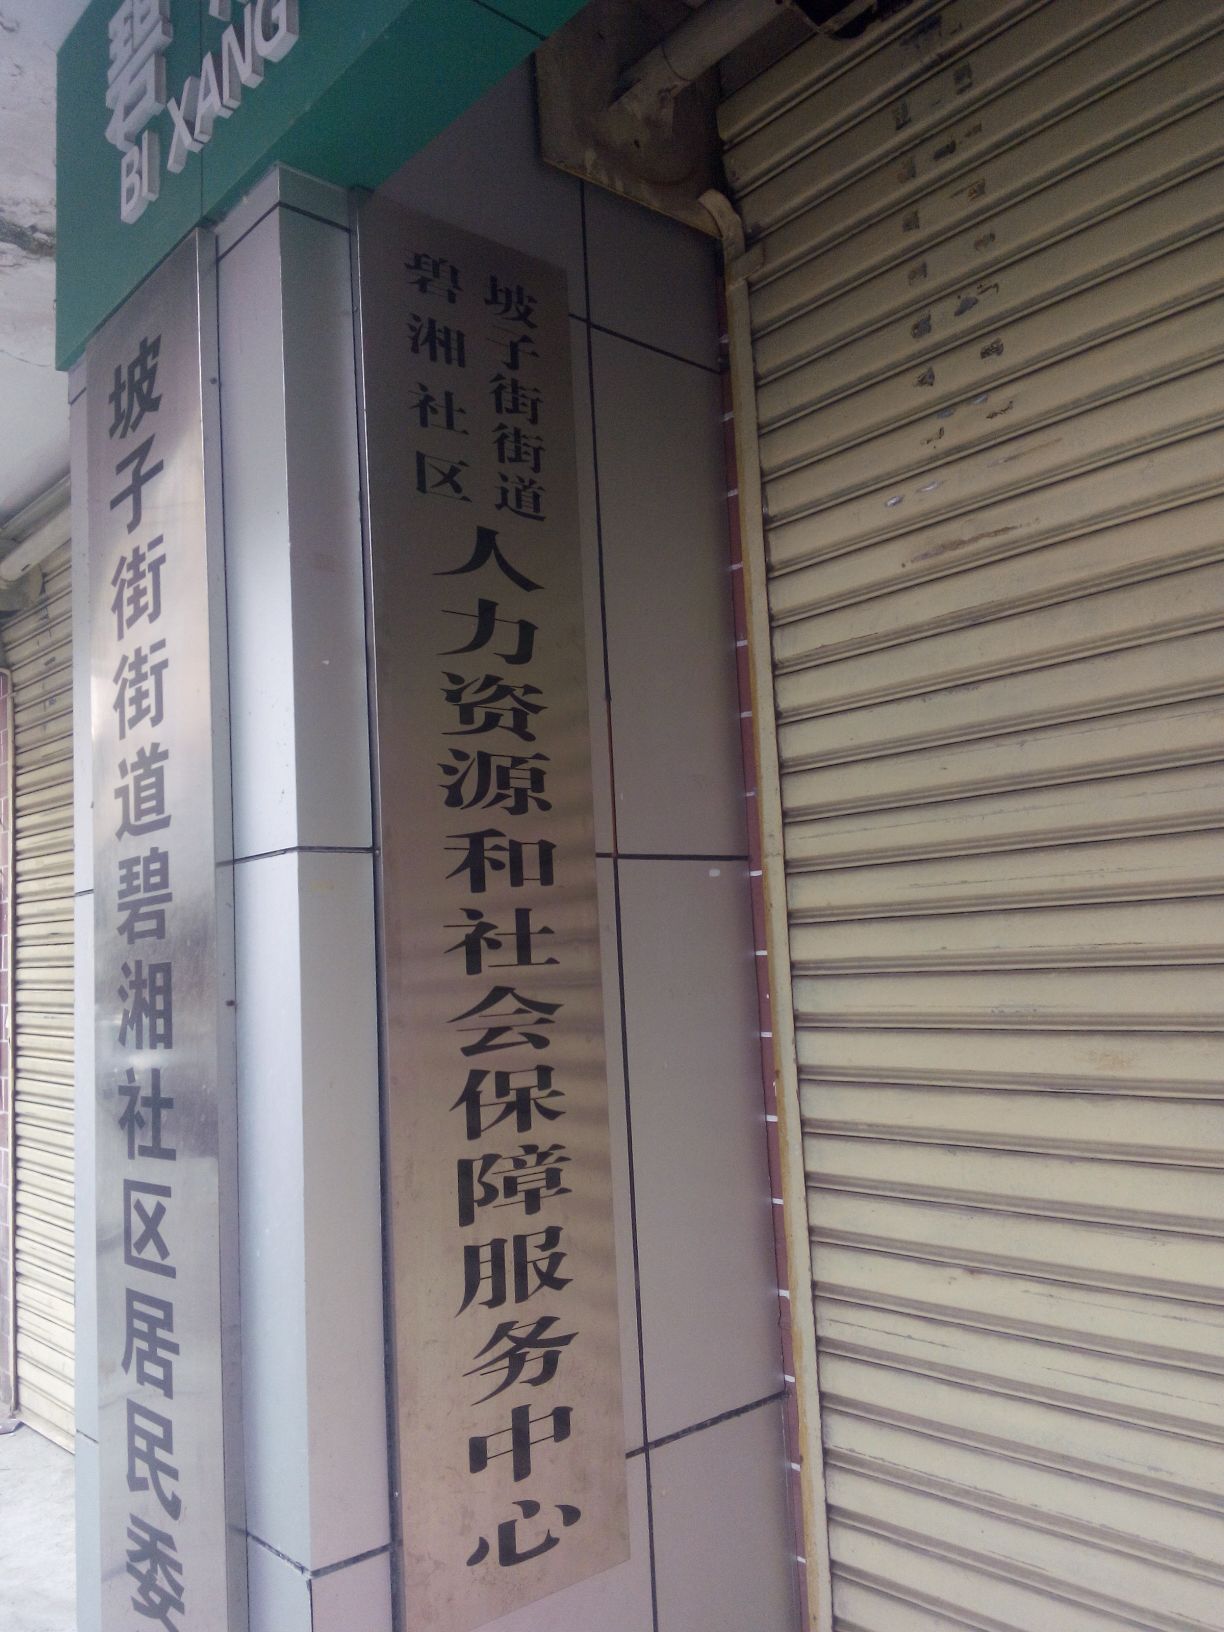 碧
BI XANG
坡子街街道碧湘社区居民委
坡子街街道
碧湘社区
人力资源和社会保障服务中心